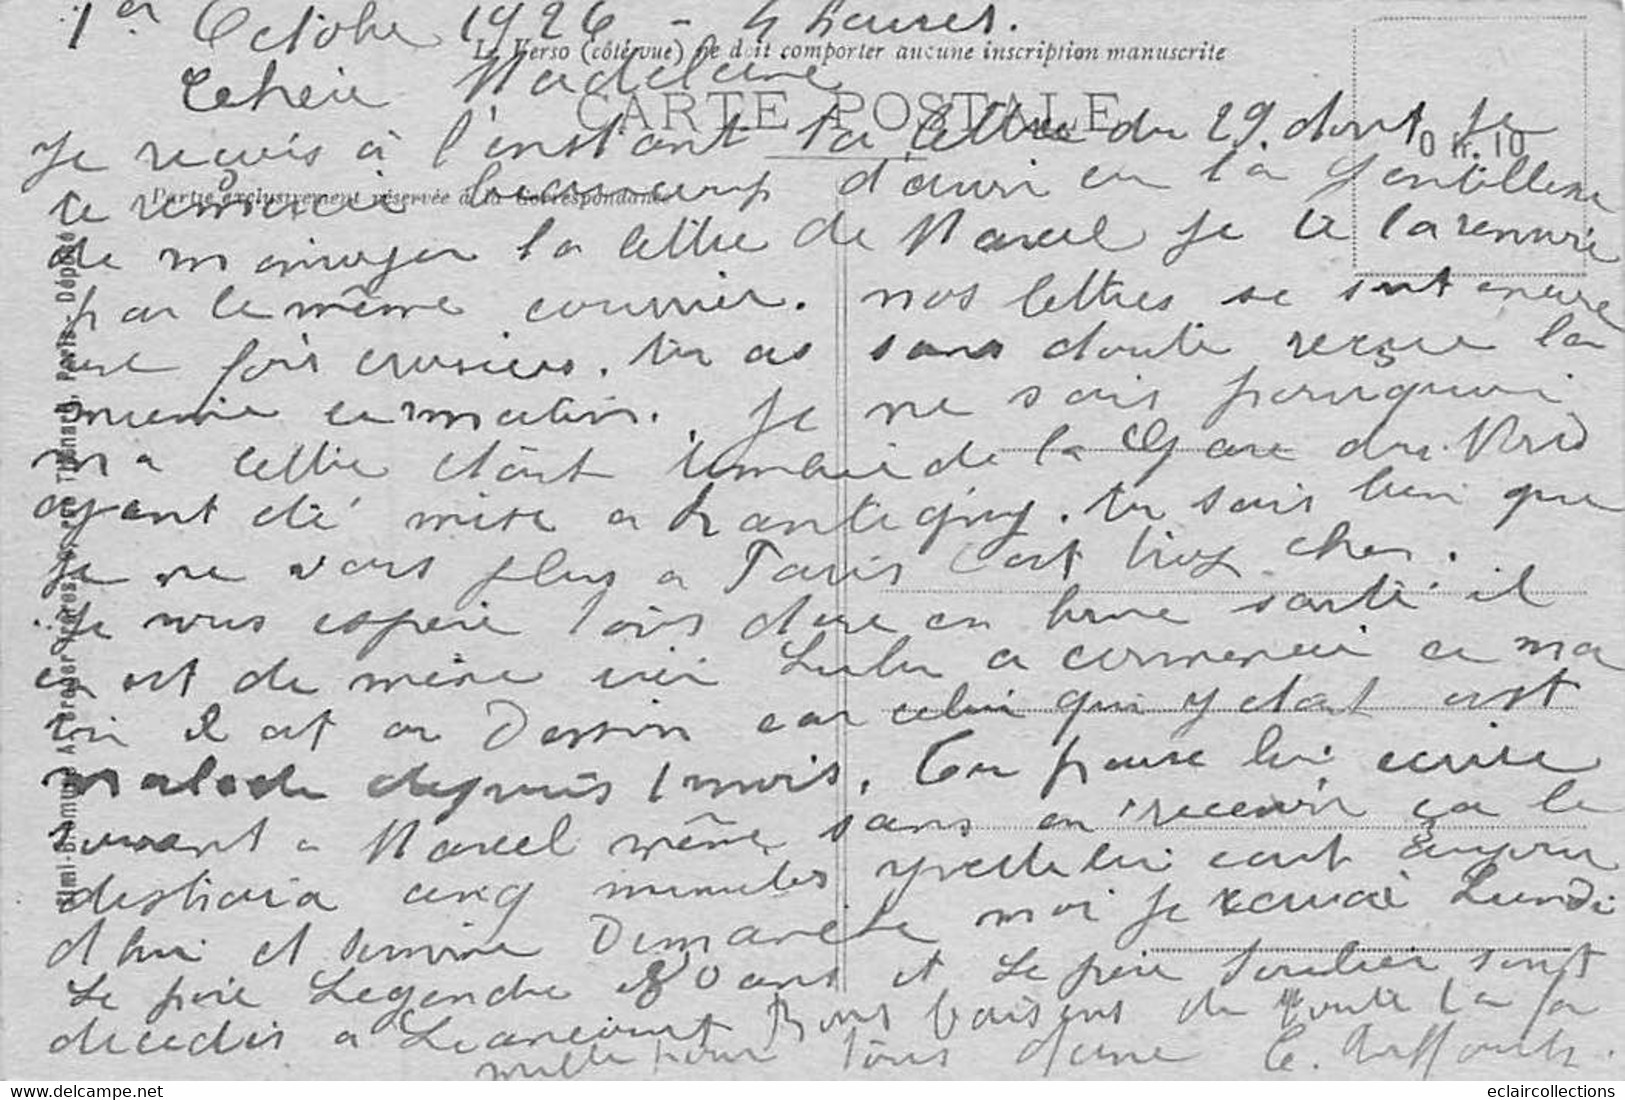 1er Octobre 1926 - 4 heures.
Le Verso (côté vue) ne doit comporter aucune inscription manuscrite
Chère Madeleine
CARTE POSTALE
Je reçois à l'instant ta lettre du 29. dont je
0 fr. 10
Partie exclusivement réservée à la Correspondance
te remercie beaucoup d'avoir eu la gentillesse
de m'envoyer la lettre de Marcel je te la renvoie
par le même courrier. nos lettres se sont encore
une fois croisées. tu as sans doute reçue la
mienne ce matin. Je ne sais pourquoi
ma lettre était timbrée de la Gare du Nord
ayant été mise a Rantigny. tu sais bien que
je ne vais plus a Paris c'est trop cher.
Je vous espère tous deux en bonne santé il
en est de même ici Lulu a commencé ce ma
tin il est au Dessin car celui qui y était est
malade depuis 1 mois. Tu peux lui écrire
souvent a Marcel même sans en recevoir ça le
distraira cinq minutes Yvette lui écrit aujour
d'hui et Simone Dimanche moi je Lundi
Le père Legendre 80 ans et Le père Soulier sont
décédés a Liancourt Bons baisers de toute la fa
mille pour tous deux C.
Dépôse
Paris
eclaircollections